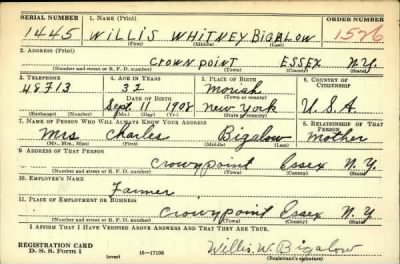 SERIAL NUMBER 1. NAME (Print) ORDER NUMBER
1445 WILLIS WHITNEY BIGALOW 1526
(First) (Middle) (Last)
2. ADDRESS (Print)
CROWNPOINT ESSEX N.Y.
(Number and street or R. F. D. number) (Town) (County) (State)
3. TELEPHONE 4. AGE IN YEARS 5. PLACE OF BIRTH 6. COUNTRY OF CITIZENSHIP
48F13 32 Moriah
DATE OF BIRTH (Town or county)
Sept. 11 1908 New York U.S.A.
(Exchange) (Number) (Mo.) (Day) (Yr.) (State or country)
7. NAME OF PERSON WHO WILL ALWAYS KNOW YOUR ADDRESS 8. RELATIONSHIP OF THAT PERSON
Mrs. Charles Bigalow Mother
(Mr., Mrs., Miss) (First) (Middle) (Last)
9. ADDRESS OF THAT PERSON
Crownpoint Essex N.Y.
(Number and street or R. F. D. number) (Town) (County) (State)
10. EMPLOYER'S NAME
Farmer
11. PLACE OF EMPLOYMENT OR BUSINESS
Crownpoint Essex N.Y.
(Number and street or R. F. D. number) (Town) (County) (State)
I AFFIRM THAT I HAVE VERIFIED ABOVE ANSWERS AND THAT THEY ARE TRUE.
REGISTRATION CARD
D. S. S. Form 1 16—17105 Willis. W. Bigalow
(over) (Registrant's signature)